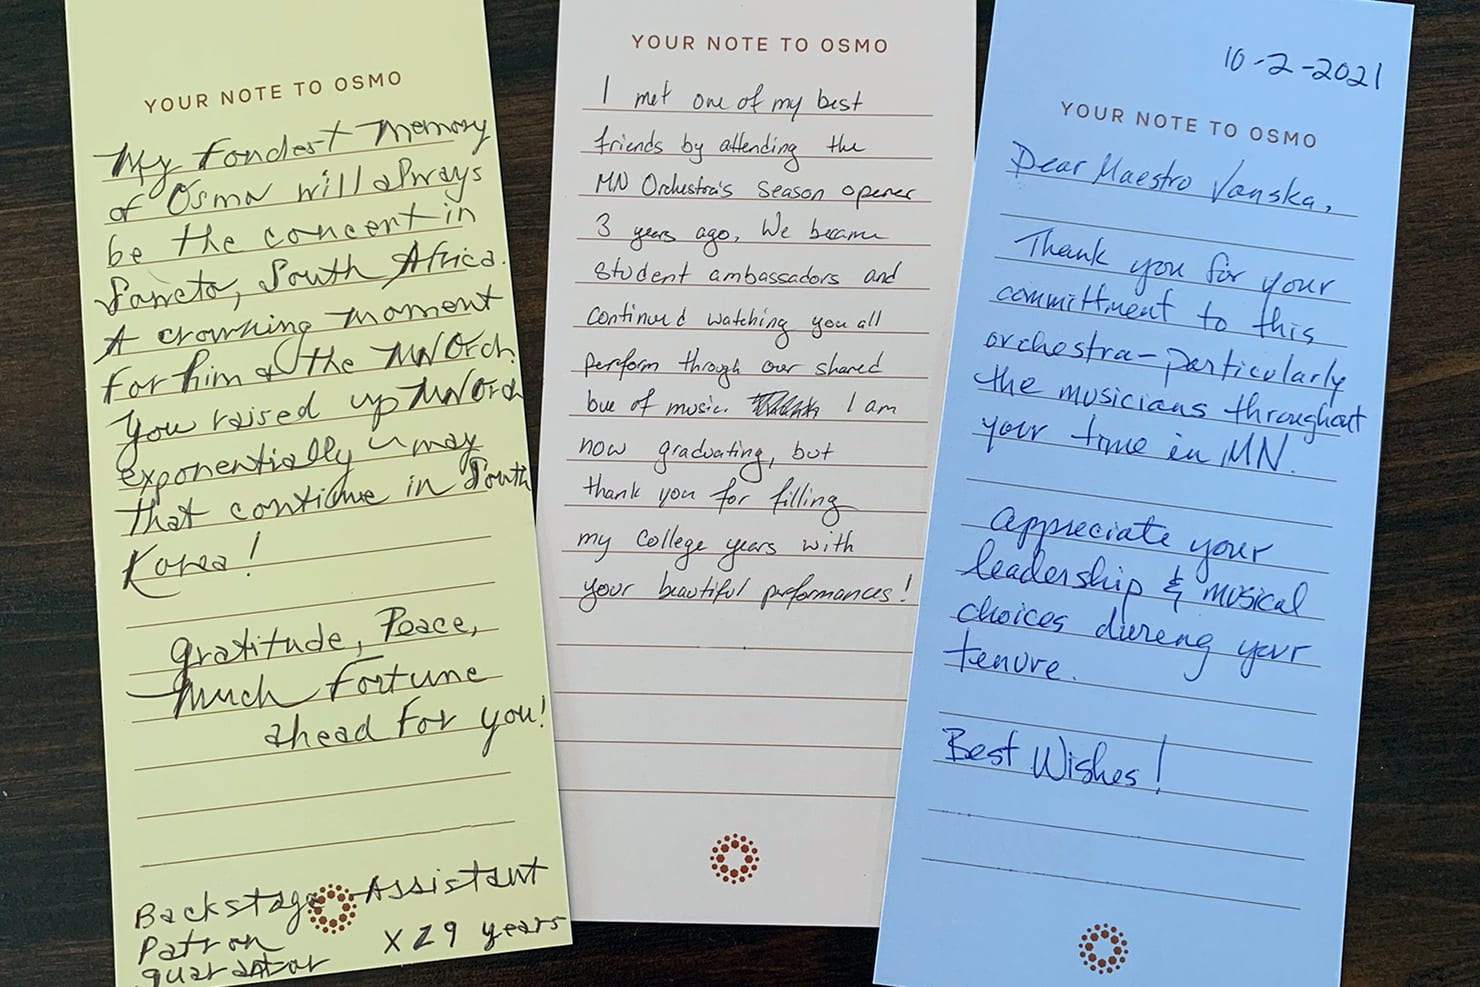 YOUR NOTE TO OSMO
My fondest memory
of Osmo will always
be the concert in
Soweto, South Africa.
A crowning moment
for him & the MN Orch.
You raised up MN Orch
exponentially may
that continue in South
Korea!
gratitude, Peace,
much fortune
ahead for you!
Backstage Assistant
Patron X 29 years
guarantor
YOUR NOTE TO OSMO
I met one of my best
friends by attending the
MN Orchestra's season opener
3 years ago. We became
student ambassadors and
continued watching you all
perform through our shared
love of music. I am
now graduating, but
thank you for filling
my college years with
your beautiful performances!
10-2-2021
YOUR NOTE TO OSMO
Dear Maestro Vanska,
Thank you for your
committment to this
orchestra - particularly
the musicians throughout
your time in MN.
Appreciate your
leadership & musical
choices during your
tenure.
Best Wishes!